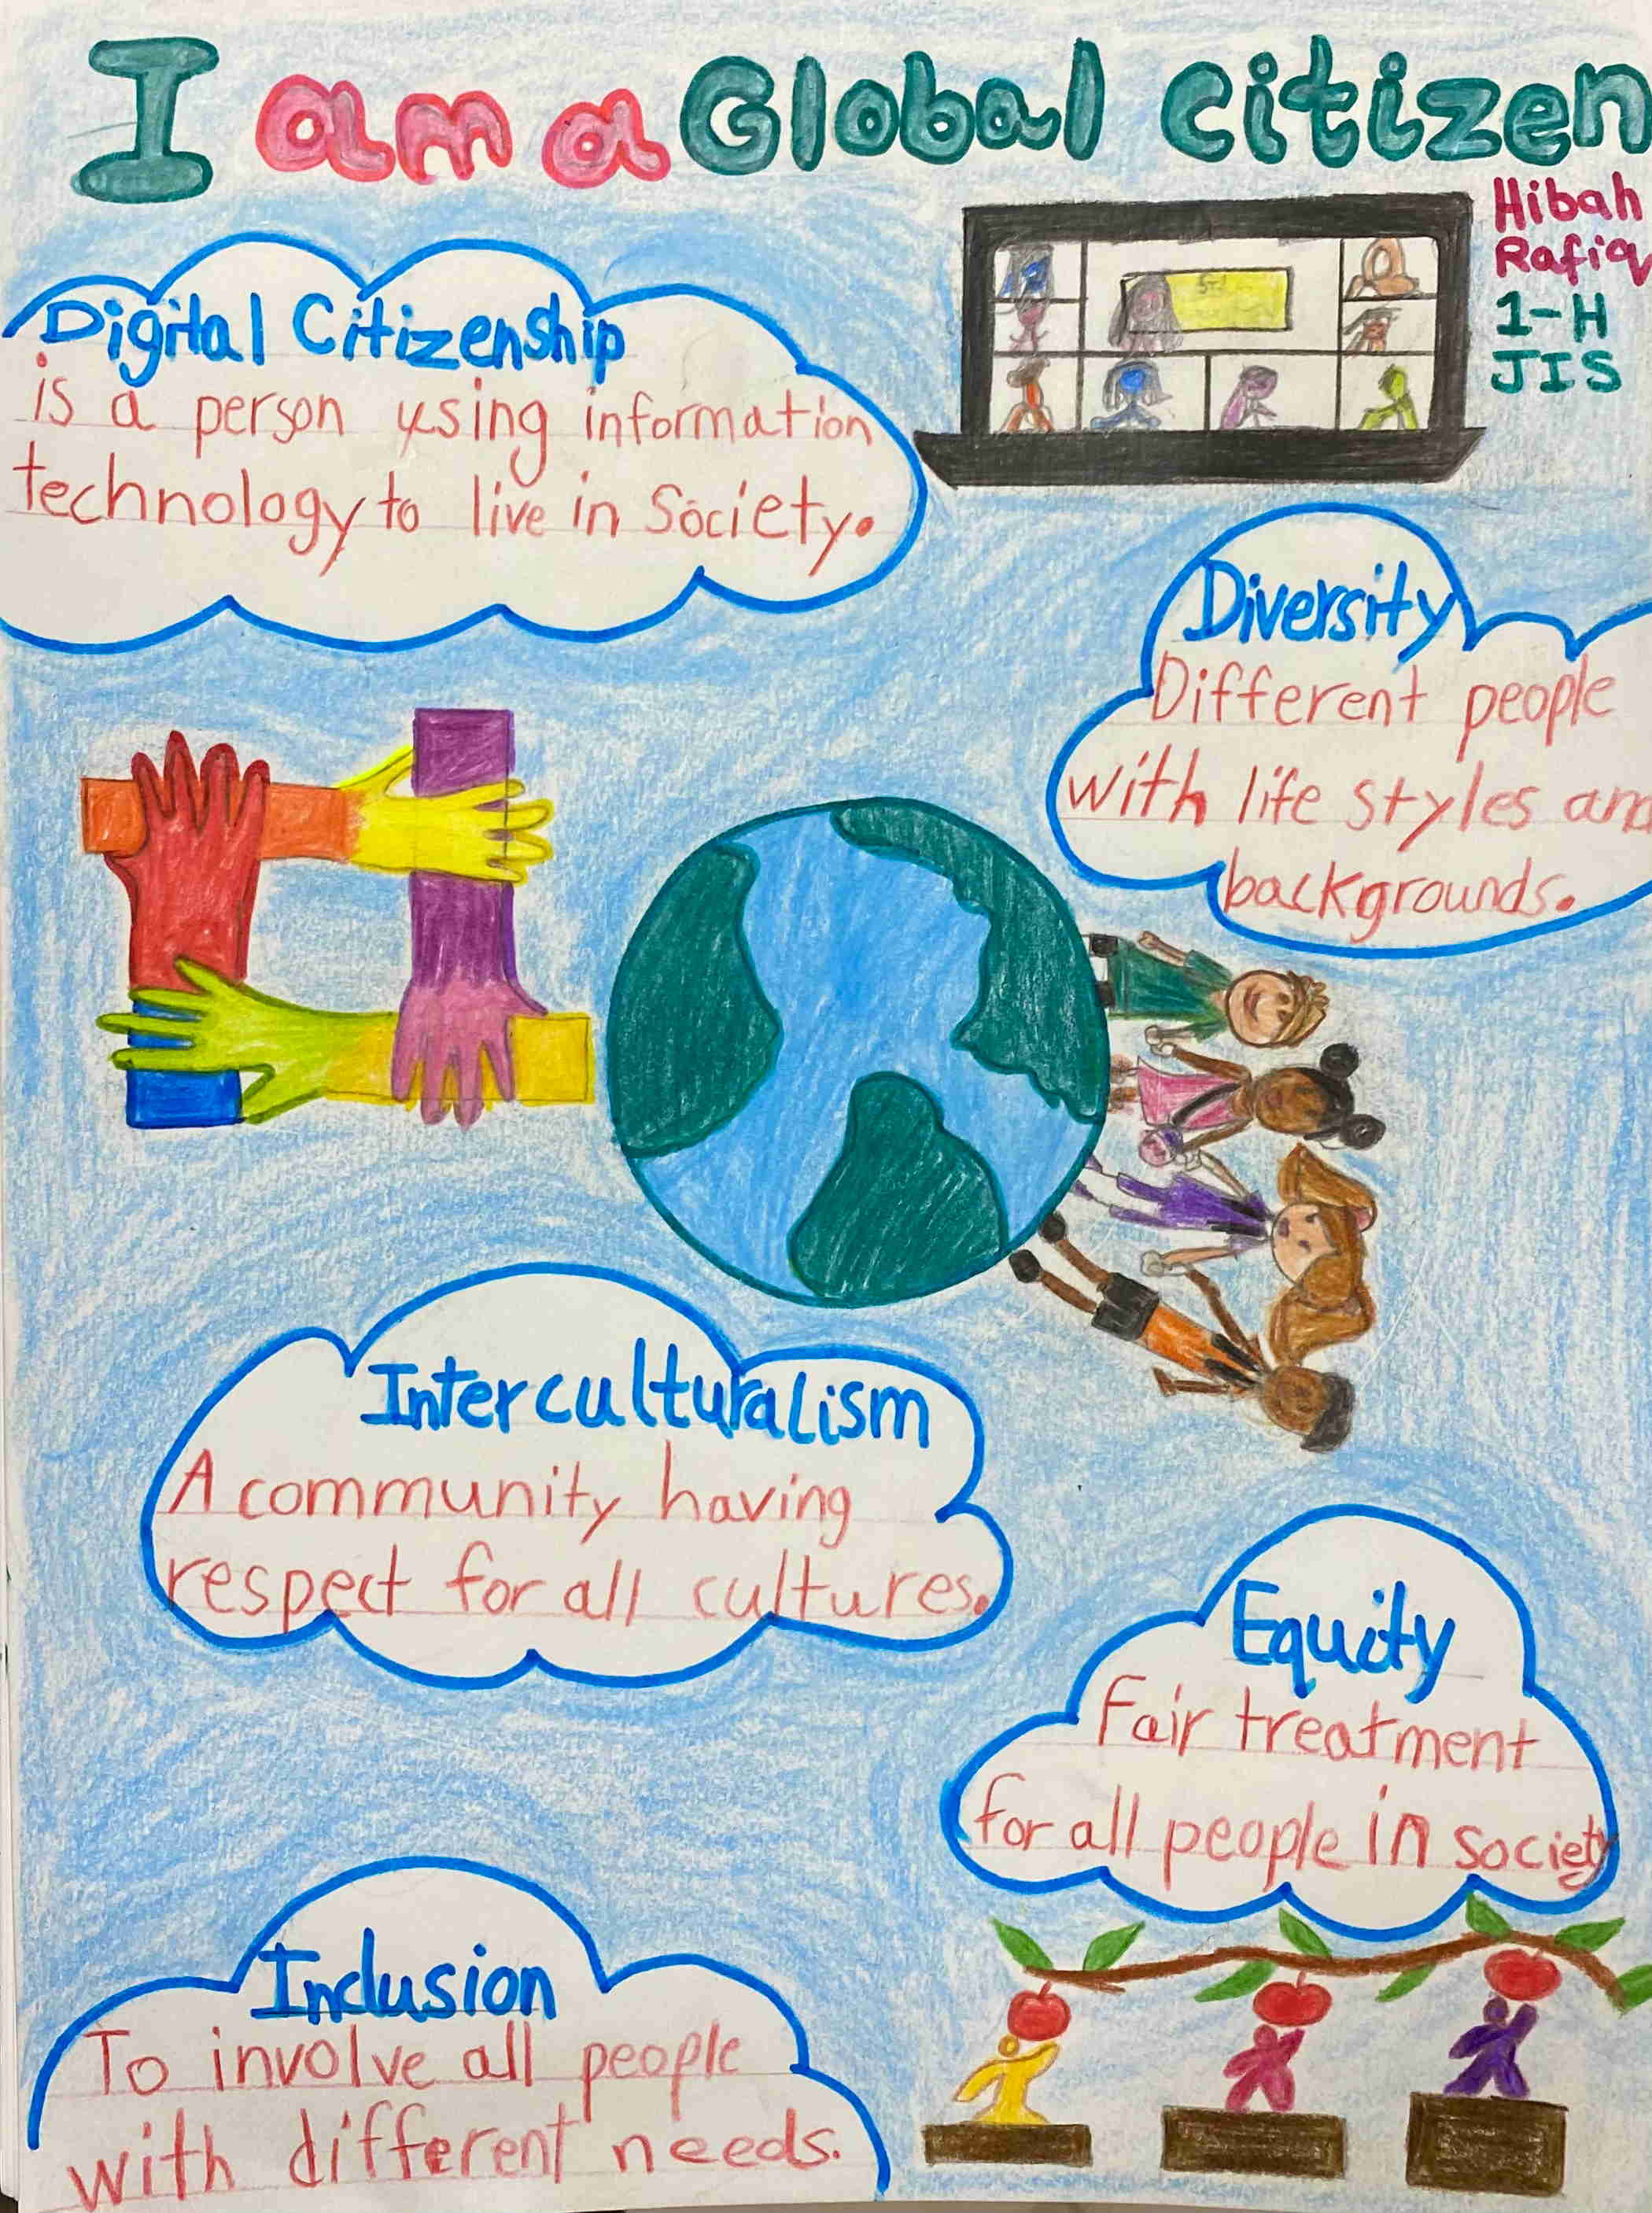 I am a Global Citizen
Hibah
Rafiq
1-H
JIS
Digital Citizenship
is a person using information
technology to live in Society.
Diversity
Different people
with life styles and
backgrounds.
Interculturalism
A community having
respect for all cultures.
Equity
Fair treatment
for all people in society
Inclusion
To involve all people
with different needs.